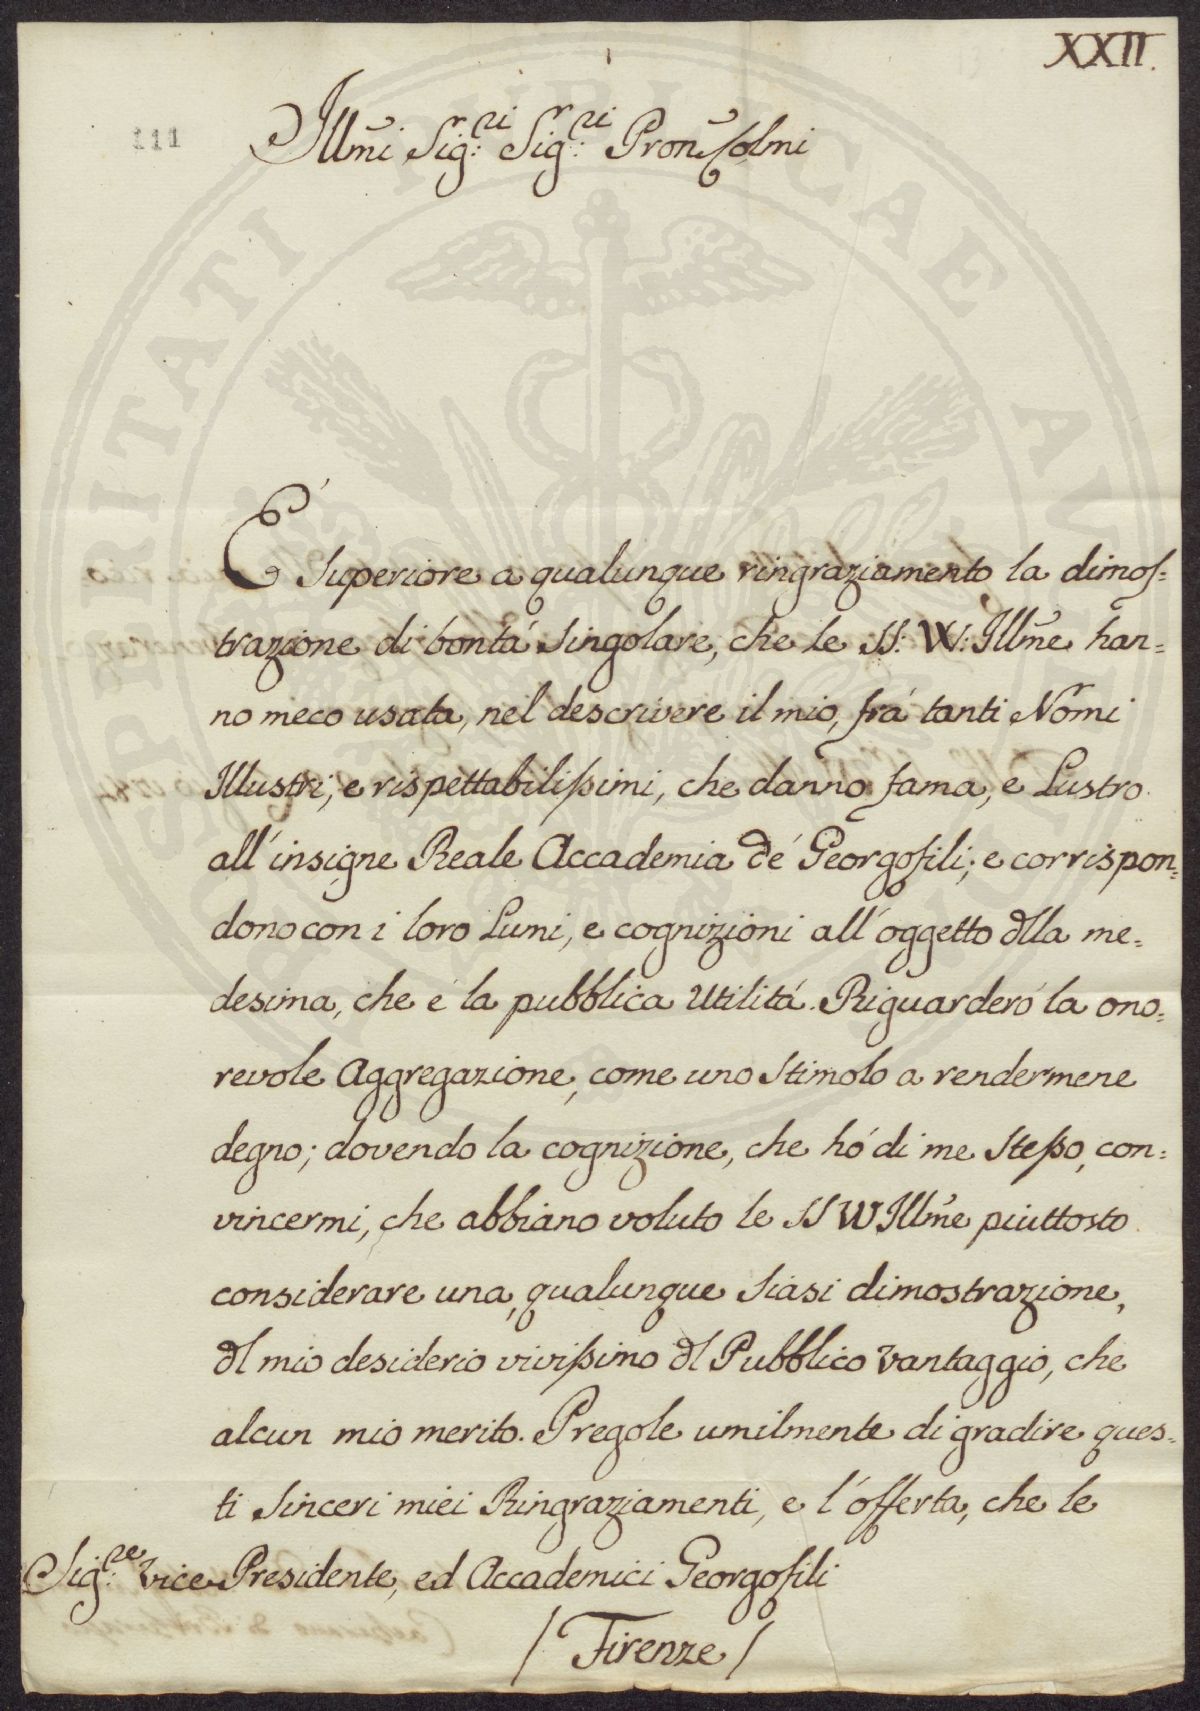 XXII.
111
Illmi Sig:ri Sig:ri Pron Colmi
È Superiore a qualunque ringraziamento la dimos=
trazione di bontá Singolare, che le SS: VV: Illme han=
no meco usata, nel descrivere il mio, frá tanti Nomi
Illustri, e rispettabilissimi, che danno fama, e Lustro
all'insigne Reale Accademia de' Georgofili; e corrispon=
dono con i loro Lumi, e cognizioni all'oggetto dlla me=
desima, che é la pubblica Utilitá. Riguarderó la ono=
revole Aggregazione, come uno Stimolo a rendermene
degno; dovendo la cognizione, che hó di me Stesso, con=
vincermi, che abbiano voluto le SS VV Illme piuttosto
considerare una, qualunque Siasi dimostrazione,
dl mio desiderio vivissimo dl Pubblico Vantaggio, che
alcun mio merito. Pregole umilmente di gradire ques=
ti Sinceri miei Ringraziamenti, e l'offerta, che le
Sig:re Vice Presidente, ed Accademici Georgofili
/ Firenze /
PROSPERITATI PUBLICAE AUGENDAE